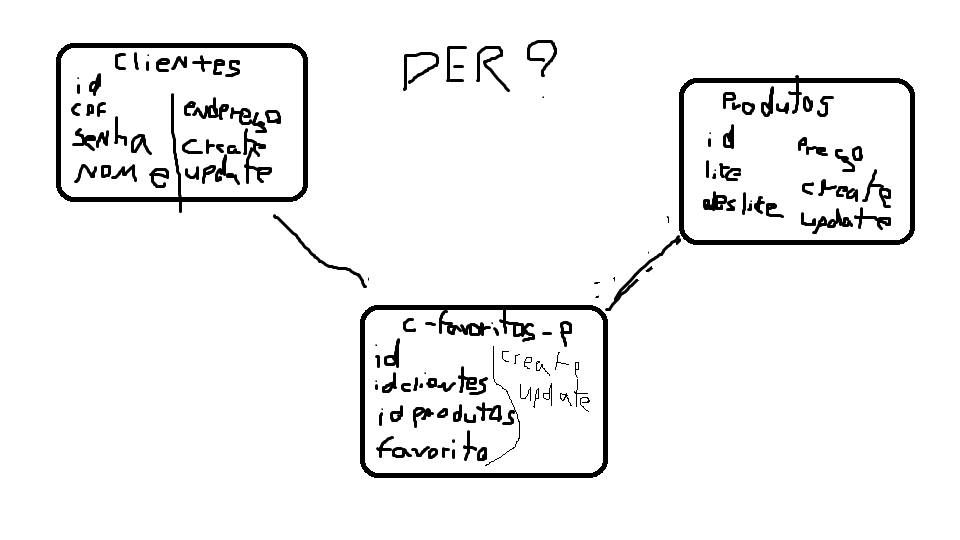 DER?
Clientes
id
CPF
senha
nome
endereço
create
update
Produtos
id
like
deslike
Preço
create
update
c-favoritos-p
id
idclientes
idprodutos
favorito
create
update